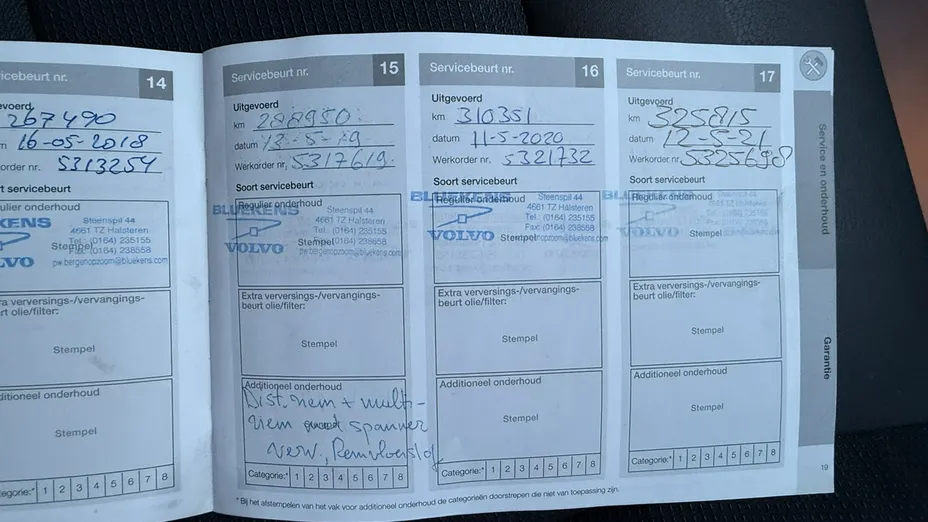 Servicebeurt nr. 14
Uitgevoerd
267490
16-05-2018
order nr. 5313254
Soort servicebeurt
Regulier onderhoud
Steenspil 44
4661 TZ Halsteren
Tel.: (0164) 235155
Fax: (0164) 238558
pw.bergenopzoom@bluekens.com
Stempel
Extra verversings-/vervangings-
beurt olie/filter:
Stempel
Additioneel onderhoud
Stempel
Categorie:* 1 2 3 4 5 6 7 8
Servicebeurt nr. 15
Uitgevoerd
km 288950
datum 13-5-19
Werkorder nr. 5317619
Soort servicebeurt
Regulier onderhoud
BLUEKENS
VOLVO
Steenspil 44
4661 TZ Halsteren
Tel.: (0164) 235155
Fax: (0164) 238558
pw.bergenopzoom@bluekens.com
Stempel
Extra verversings-/vervangings-
beurt olie/filter:
Stempel
Additioneel onderhoud
Dist. riem + multi-
riem spanner
verw., Remvloeistof
Categorie:* 1 2 3 4 5 6 7 8
Servicebeurt nr. 16
Uitgevoerd
km 310351
datum 11-5-2020
Werkorder nr. 5321732
Soort servicebeurt
Regulier onderhoud
BLUEKENS
VOLVO
Steenspil 44
4661 TZ Halsteren
Tel.: (0164) 235155
Fax: (0164) 238558
pw.bergenopzoom@bluekens.com
Stempel
Extra verversings-/vervangings-
beurt olie/filter:
Stempel
Additioneel onderhoud
Stempel
Categorie:* 1 2 3 4 5 6 7 8
Servicebeurt nr. 17
Uitgevoerd
km 325815
datum 12-5-21
Werkorder nr. 5325698
Soort servicebeurt
Regulier onderhoud
BLUEKENS
VOLVO
Stempel
Extra verversings-/vervangings-
beurt olie/filter:
Stempel
Additioneel onderhoud
Stempel
Categorie:* 1 2 3 4 5 6 7 8
* Bij het afstempelen van het vak voor additioneel onderhoud de categorieën doorstrepen die niet van toepassing zijn.
Service en onderhoud
Garantie
19